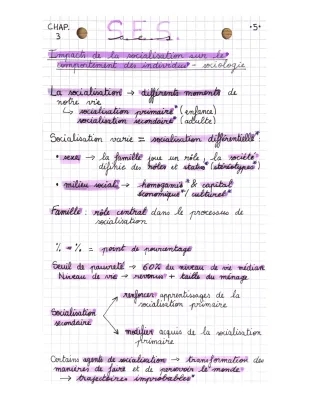 CHAP. 3
S.E.S.
•5•
Impacts de la socialisation sur le
comportement des individus - sociologie
La socialisation → différents moments de
notre vie
↳ socialisation primaire* (enfance)
socialisation secondaire* (adulte)
Socialisation varie = socialisation différentielle*
• sexe → la famille joue un rôle. la société
définie des rôles et status* (stéréotypes*)
• milieu social → homogamie* & capital
économique*/ culturel*
Famille : rôle central dans le processus de
socialisation
% = point de pourcentage
Seuil de pauvreté → 60% du niveau de vie médian
Niveau de vie → revenus + taille du ménage
renforcer apprentissages de la
socialisation primaire
Socialisation
secondaire
modifier acquis de la socialisation
primaire
Certains agents de socialisation → transformation des
manières de faire et de percevoir le monde
→ trajectoires improbables*